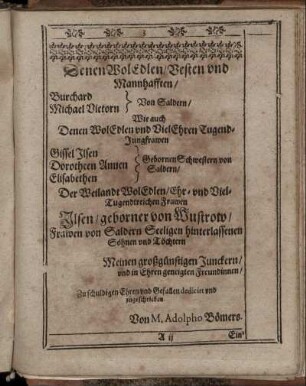 Denen WolEdlen/Vesten vnd
Mannhafften/
Burchard
Michael Victorn
Von Saldern/
Wie auch
Denen WolEdlen vnd VielEhren Tugend-
Jungfrawen
Gissel Ilsen
Dorotheen Annen
Elisabethen
Gebornen Schwestern von
Saldern/
Der Weilandt WolEdlen/Ehr- vnd Viel-
Tugendtreichen Frawen
Ilsen/geborner von Wustrow/
Frawen von Saldern Seeligen hinterlassenen
Söhnen vnd Töchtern
Meinen großgünstigen Junckern/
vnd in Ehren geneigten Freundinnen/
Zu schuldigen Ehren vnd Gefallen dedicirt vnd
zugeschrieben
Von M. Adolpho Bömers.
A ij
Ein